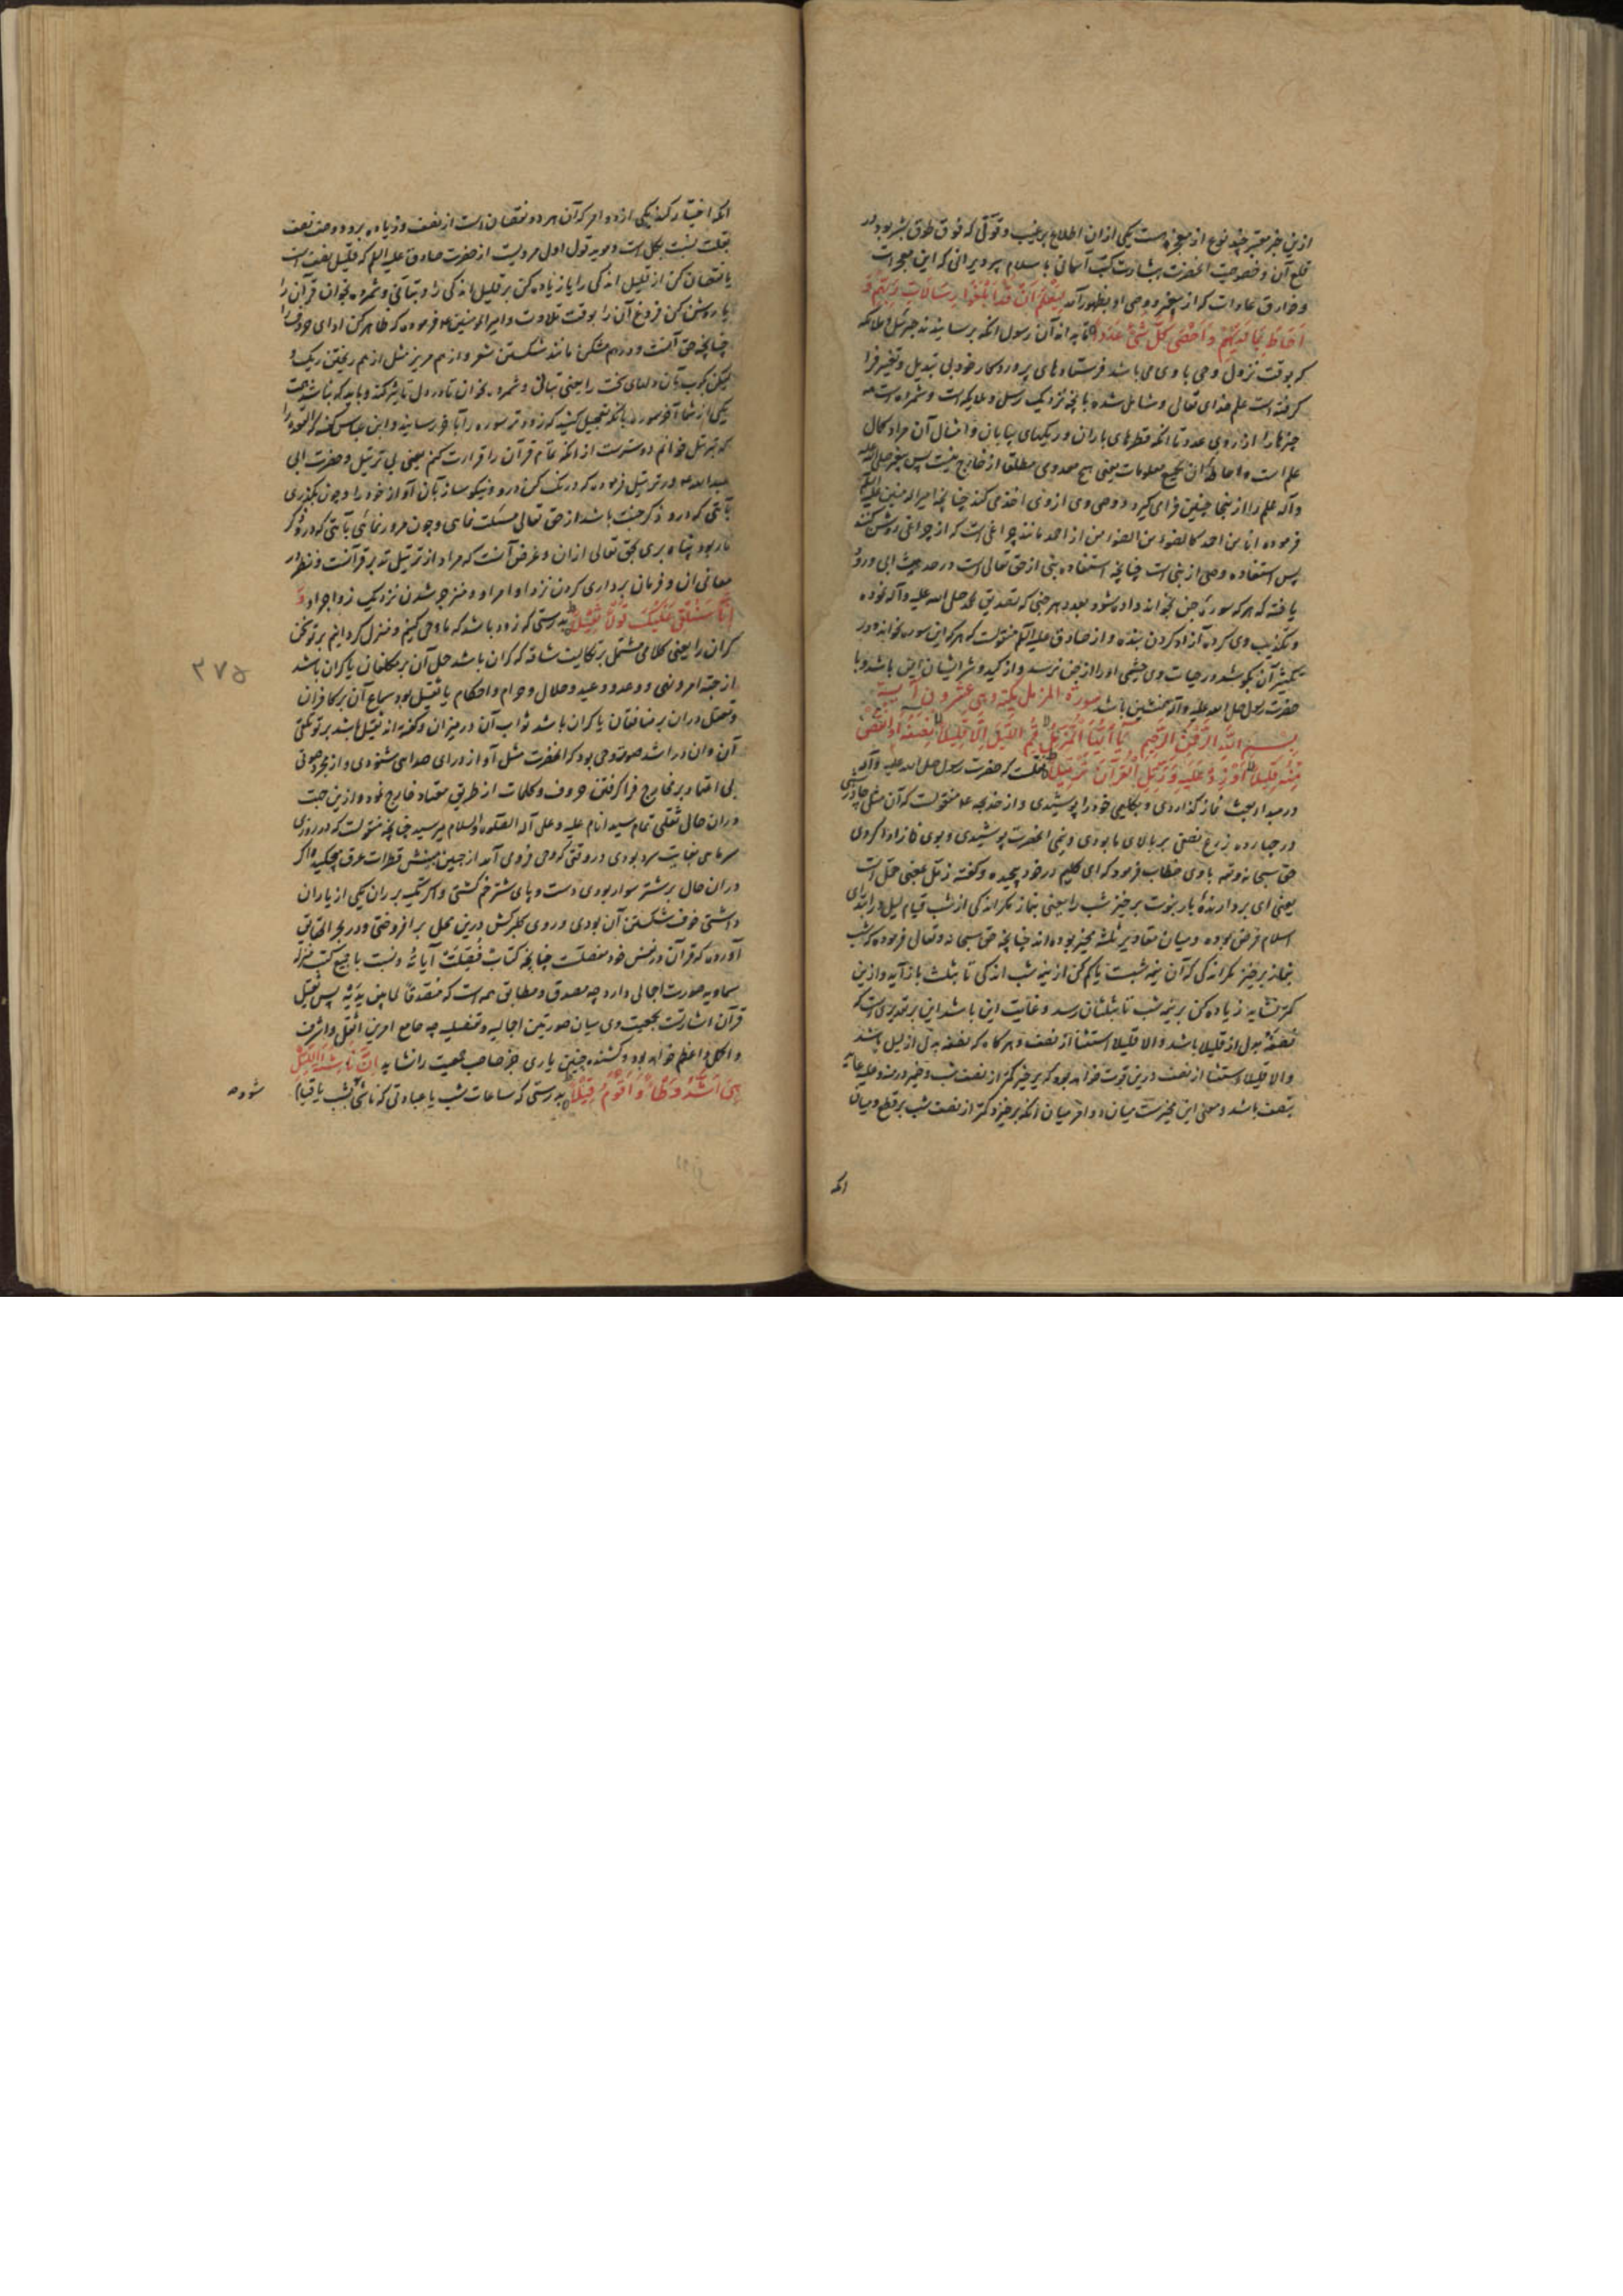 ازین خبر معتبر چند نوع از معجزه است یکی ازان اطلاع بر غیب و قوتی که فوق طوق بشر بود در
قلع آن و خصوصیت آنحضرت بشارت کتب آسمانی با سلام پیرویرانی که این معجز است
و خارق عادات که از پیغمبر و وصی او بظهور آمد لِیَعْلَمَ اَنْ قَدْ اَبْلَغُوا رِسَالَاتِ رَبِّهِمْ وَ
اَحَاطَ بِمَا لَدَیْهِمْ وَاَحْصَی کُلَّ شَیْءٍ عَدَدًا تا بداند آن رسول آنکه برسانیدند جبرئیل و ملائکه
که بوقت نزول وحی با وی می باشند فرستاده های پروردگار خود بی تبدیل و تغییر و فرا
گرفته است علم خدای تعالی و شامل شده بآنچه نزدیک رسل و ملایکه است و شمرده است همه
چیزها را از روی عدد تا آنکه قطرهای باران و ریگهای بیابان و امثال آن مراد کمال
علم است و احاطه آن بجمیع معلومات یعنی هیچ معدودی مطلق از خارج نیست پس پیغمبر صلی الله علیه
و آله علم را از ینجا چنین فرا می گیرد و وصی وی از وی اخذ می کند چنانچه امیر المومنین علیه السلام
فرموده انا من احمد کالضوء من الضوء من از احمد مانند چراغی است که از چراغی روشن کنند
پس استفاده وصی از نبی است چنانچه استفاده نبی از حق تعالی است در حدیث ابی ورود
یافته که هر که سورهٔ جن بخواند داده شود بعدد هر جنی که تصدیق محمد صلی الله علیه و آله نموده
و تکذیب وی کرده آزاد کردن بنده و از صادق علیه السلام منقولست که هر که این سوره بخواند و در
بکثیر آن بکوشد در حیات وی چشمی او را از جن نرسد و از کید و شر ایشان ایمن باشد و با
حضرت رسول صلی الله علیه و آله همنشین باشد سورة المزمل مکیة و هی عشرون آیة
بسم الله الرحمن الرحیم یَا أَیُّهَا الْمُزَّمِّلُ قُمِ اللَّیْلَ اِلَّا قَلِیلًا نِصْفَهُ اَوِ انْقُصْ
مِنْهُ قَلِیلًا اَوْ زِدْ عَلَیْهِ وَرَتِّلِ الْقُرْآنَ تَرْتِیلًا نقلست که حضرت رسول صلی الله علیه و آله
در مبداء بعثت نماز گذاردی و بگلیمی خود را پوشیدی و از خدیجه منقولست که آن مثل چادر شبی
در چهارده ذرع نصفی بر بالای ما بودی و نیمی آنحضرت پوشیدی و بوی نماز ادا کردی
حق سبحانه و تعالی با وی خطاب فرمود که ای گلیم در خود پیچیده و گفته زمل بمعنی حمل است
یعنی ای بردارندهٔ بار نبوت برخیز شب را یعنی بنماز مگر اندکی از شب قیام لیل در ابتدای
اسلام فرض بوده و میان مقادیر ثلثه مخیر بوده اند چنانچه حق سبحانه و تعالی فرموده که شب
بنماز برخیز مگر اندکی که آن نیمه شبست یا کم کن از نیمه شب اندکی تا بثلث باز آید و ازین
کمتر نشاید زیاده کن بر نیمه شب تا بثلثان رسد و غایت این باشد این بر تقدیری است که
نصفه بدل از قلیلا باشد و الا قلیلا استثنا از نصف و هرگاه که نصفه بدل از لیل باشد
و الا قلیلا استثنا از نصف درین قوت خواهد بود که برخیز کمتر از نصف شب و ضمیر در منه و علیه عاید
بنصف باشد و معنی این مخیرست میان دو امر میان آنکه برخیزد کمتر از نصف شب بر قطع و میان
انکه
انکه اختیار کند یکی از دو امر که آن هر دو نقصان است از نصف و زیاده برو و وصف نصف
بقلت نسبت بکل است و موید قول اول مرویست از حضرت صادق علیه السلام که قلیل نصف است
یا نقصان کن از قلیل اندکی را یا زیاده کن بر قلیل اندکی را و بتأنی و شمرده بخوان قرآن را
یا روشن کن فروغ آن را بوقت تلاوت و امیر المومنین فرموده که ظاهر کن ادای حروف را
چنانچه حق آنست و درهم مشکن مانند شکستن شعر و از هم مریز مثل از هم ریختن ریگ و
لیکن بکوب بآن دلهای سخت را یعنی بتأنی و شمرده بخوان تا در دل تاثیر کند و باید که نباشد همت
یکی از شما آخر سوره یا آنکه تعجیل کنید که زودتر سوره را بآخر رسانید و ابن عباس گفته که اگر بقره را
که بترتیل خوانم دوسترست از آنکه تمام قرآن را قرائت کنم یعنی بی ترتیل و حضرت ابی
عبدالله در ترتیل فرموده که درنگ کن درو و نیکو ساز بآن آواز خود را و چون بگذری
بآیتی که درو ذکر جنت باشد از حق تعالی مسئلت نمای و چون مرور نمائی بآیتی که درو ذکر
نار بود پناه بری بحق تعالی ازان و غرض آنست که مراد از ترتیل تدبر قرآنست و نظر در
معانی آن و فرمان برداری کردن نزد اوامر او و منزجر شدن نزدیک زواجر او
اِنَّا سَنُلْقِی عَلَیْکَ قَوْلًا ثَقِیلًا بدرستی که زود باشد که ما وحی کنیم و منزل گردانیم بر تو سخن
گران را یعنی کلامی مشتمل بر تکالیف شاقه که گران باشد حمل آن بر مکلفان یا گران باشد
از جهة امر و نهی و وعد و وعید و حلال و حرام و احکام یا ثقیل بود سماع آن بر کافران
و تعقل دران بر منافقان یا گران باشد ثواب آن در میزان و گفته اند ثقیل باشد بر تو تلقی
آن و آن در اشد صورت وحی بود که آنحضرت مثل آواز درای صدایی شنودی و از مجرد صوتی
بی اعتماد بر مخارج فرا گرفتن حروف و کلمات از طریق معتاد خارج نموده و ازین جهت
دران حال ثقلی تمام سید انام علیه و علی آله الصلوة و السلام میرسید چنانچه منقولست که در روزی
سرمای بغایت سرد بودی در وقتی که وحی فرود می آمد از جبین مبینش قطرات عرق میچکید و اگر
دران حال بر شتر سوار بودی دست و پای شتر خم گشتی و اگر تکیه بر ران یکی از یاران
داشتی خوف شکستن آن بودی و روی گلبرگش درین محل برافروختی و در بحر الحقایق
آورده که قرآن در نفس خود مفصلست چنانچه کتاب فصلت آیاته و نسبت با جمیع کتب منزله
سماویه صورت اجمالی دارد چه مصدق و مطابق همه است که مصدقا لما بین یدیه پس ثقیل
قرآن اشارتست بجمعیت وی میان صورتین اجالیه و تفصیلیه چه جامع امرین اثقل و اشرف
و اکمل و اعظم خواهد بود و کشنده چنین باری جز صاحب جمعیت را نشاید اِنَّ نَاشِئَةَ اللَّیْلِ
هِیَ اَشَدُّ وَطْأً وَاَقْوَمُ قِیلًا بدرستی که ساعات شب یا عبادتی که ناشی شب یا قیام
شوده
۲۷۵